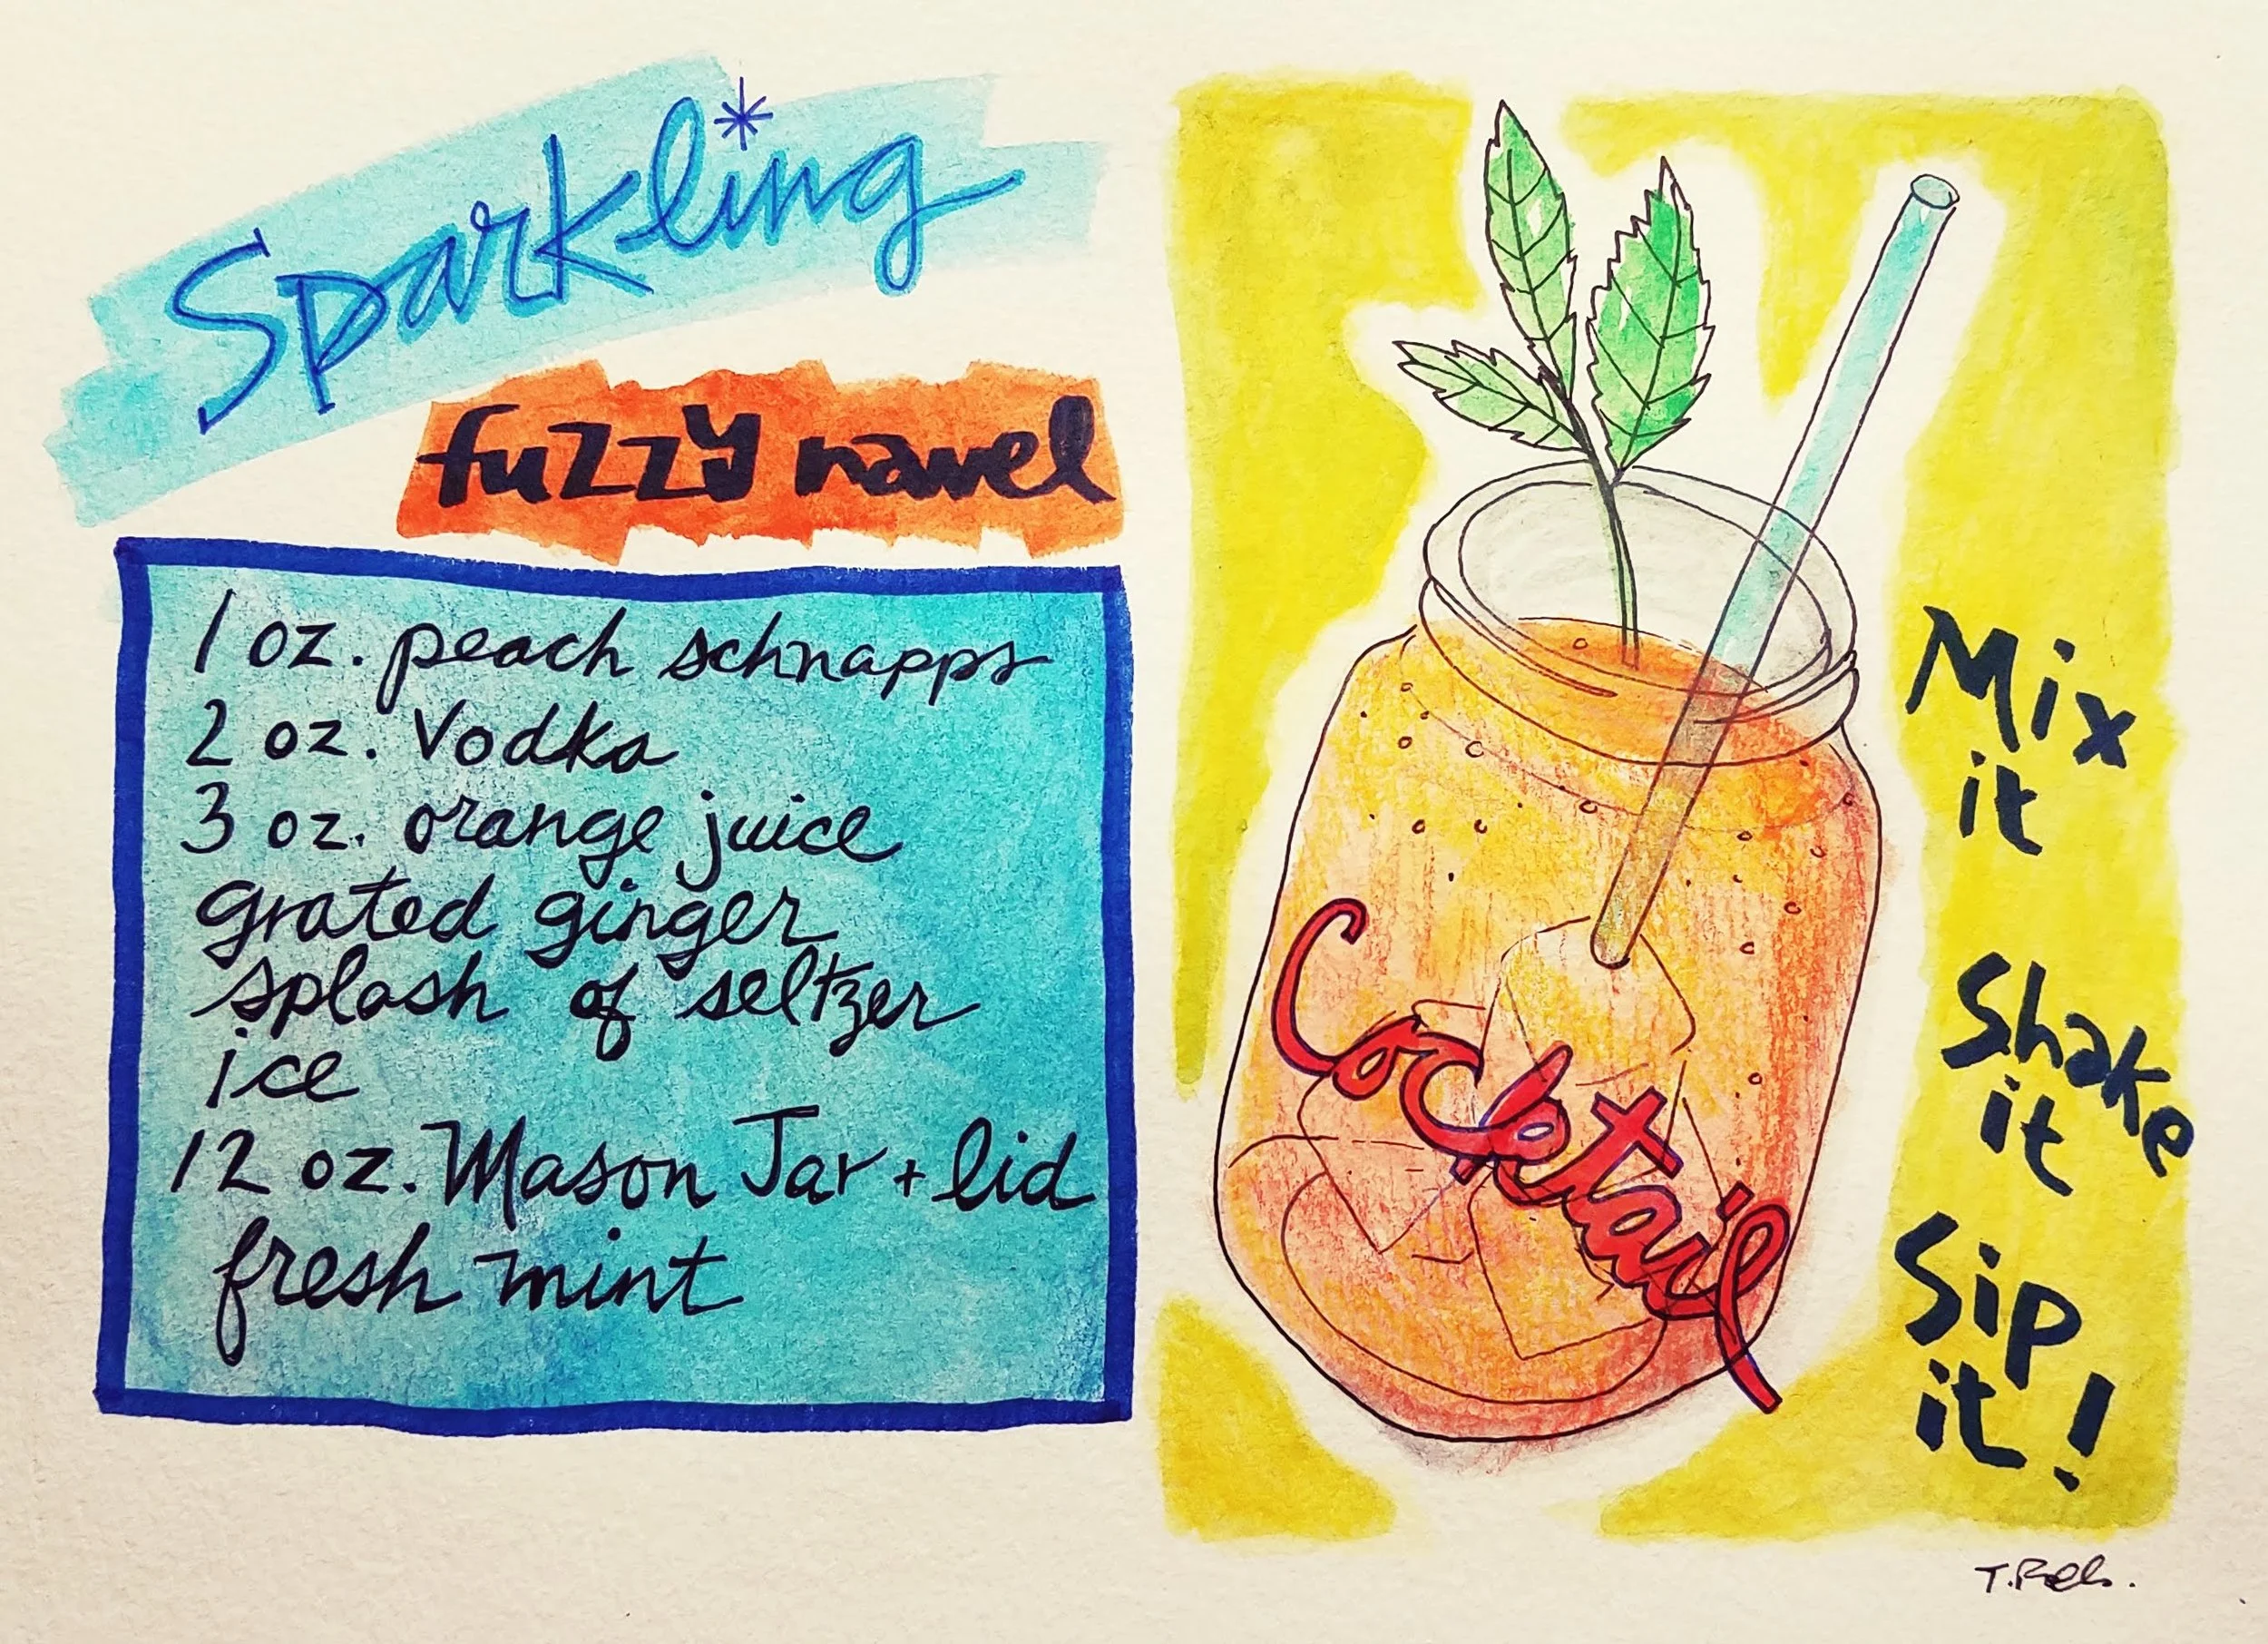 Sparkling
fuzzy navel
1 oz. peach schnapps
2 oz. Vodka
3 oz. orange juice
grated ginger
splash of seltzer
ice
12 oz. Mason Jar + lid
fresh mint
Cocktail
Mix
it
Shake
it
Sip
it!